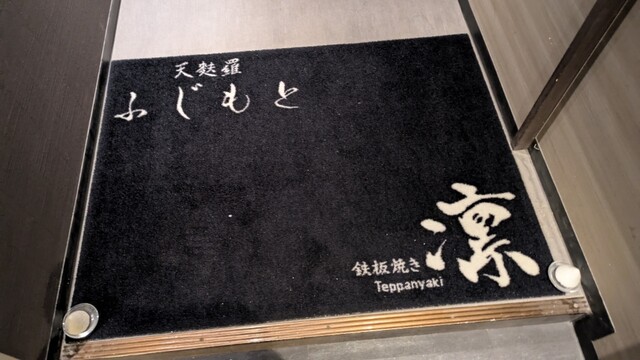 天麩羅
ふじもと
鉄板焼き
Teppanyaki
凛